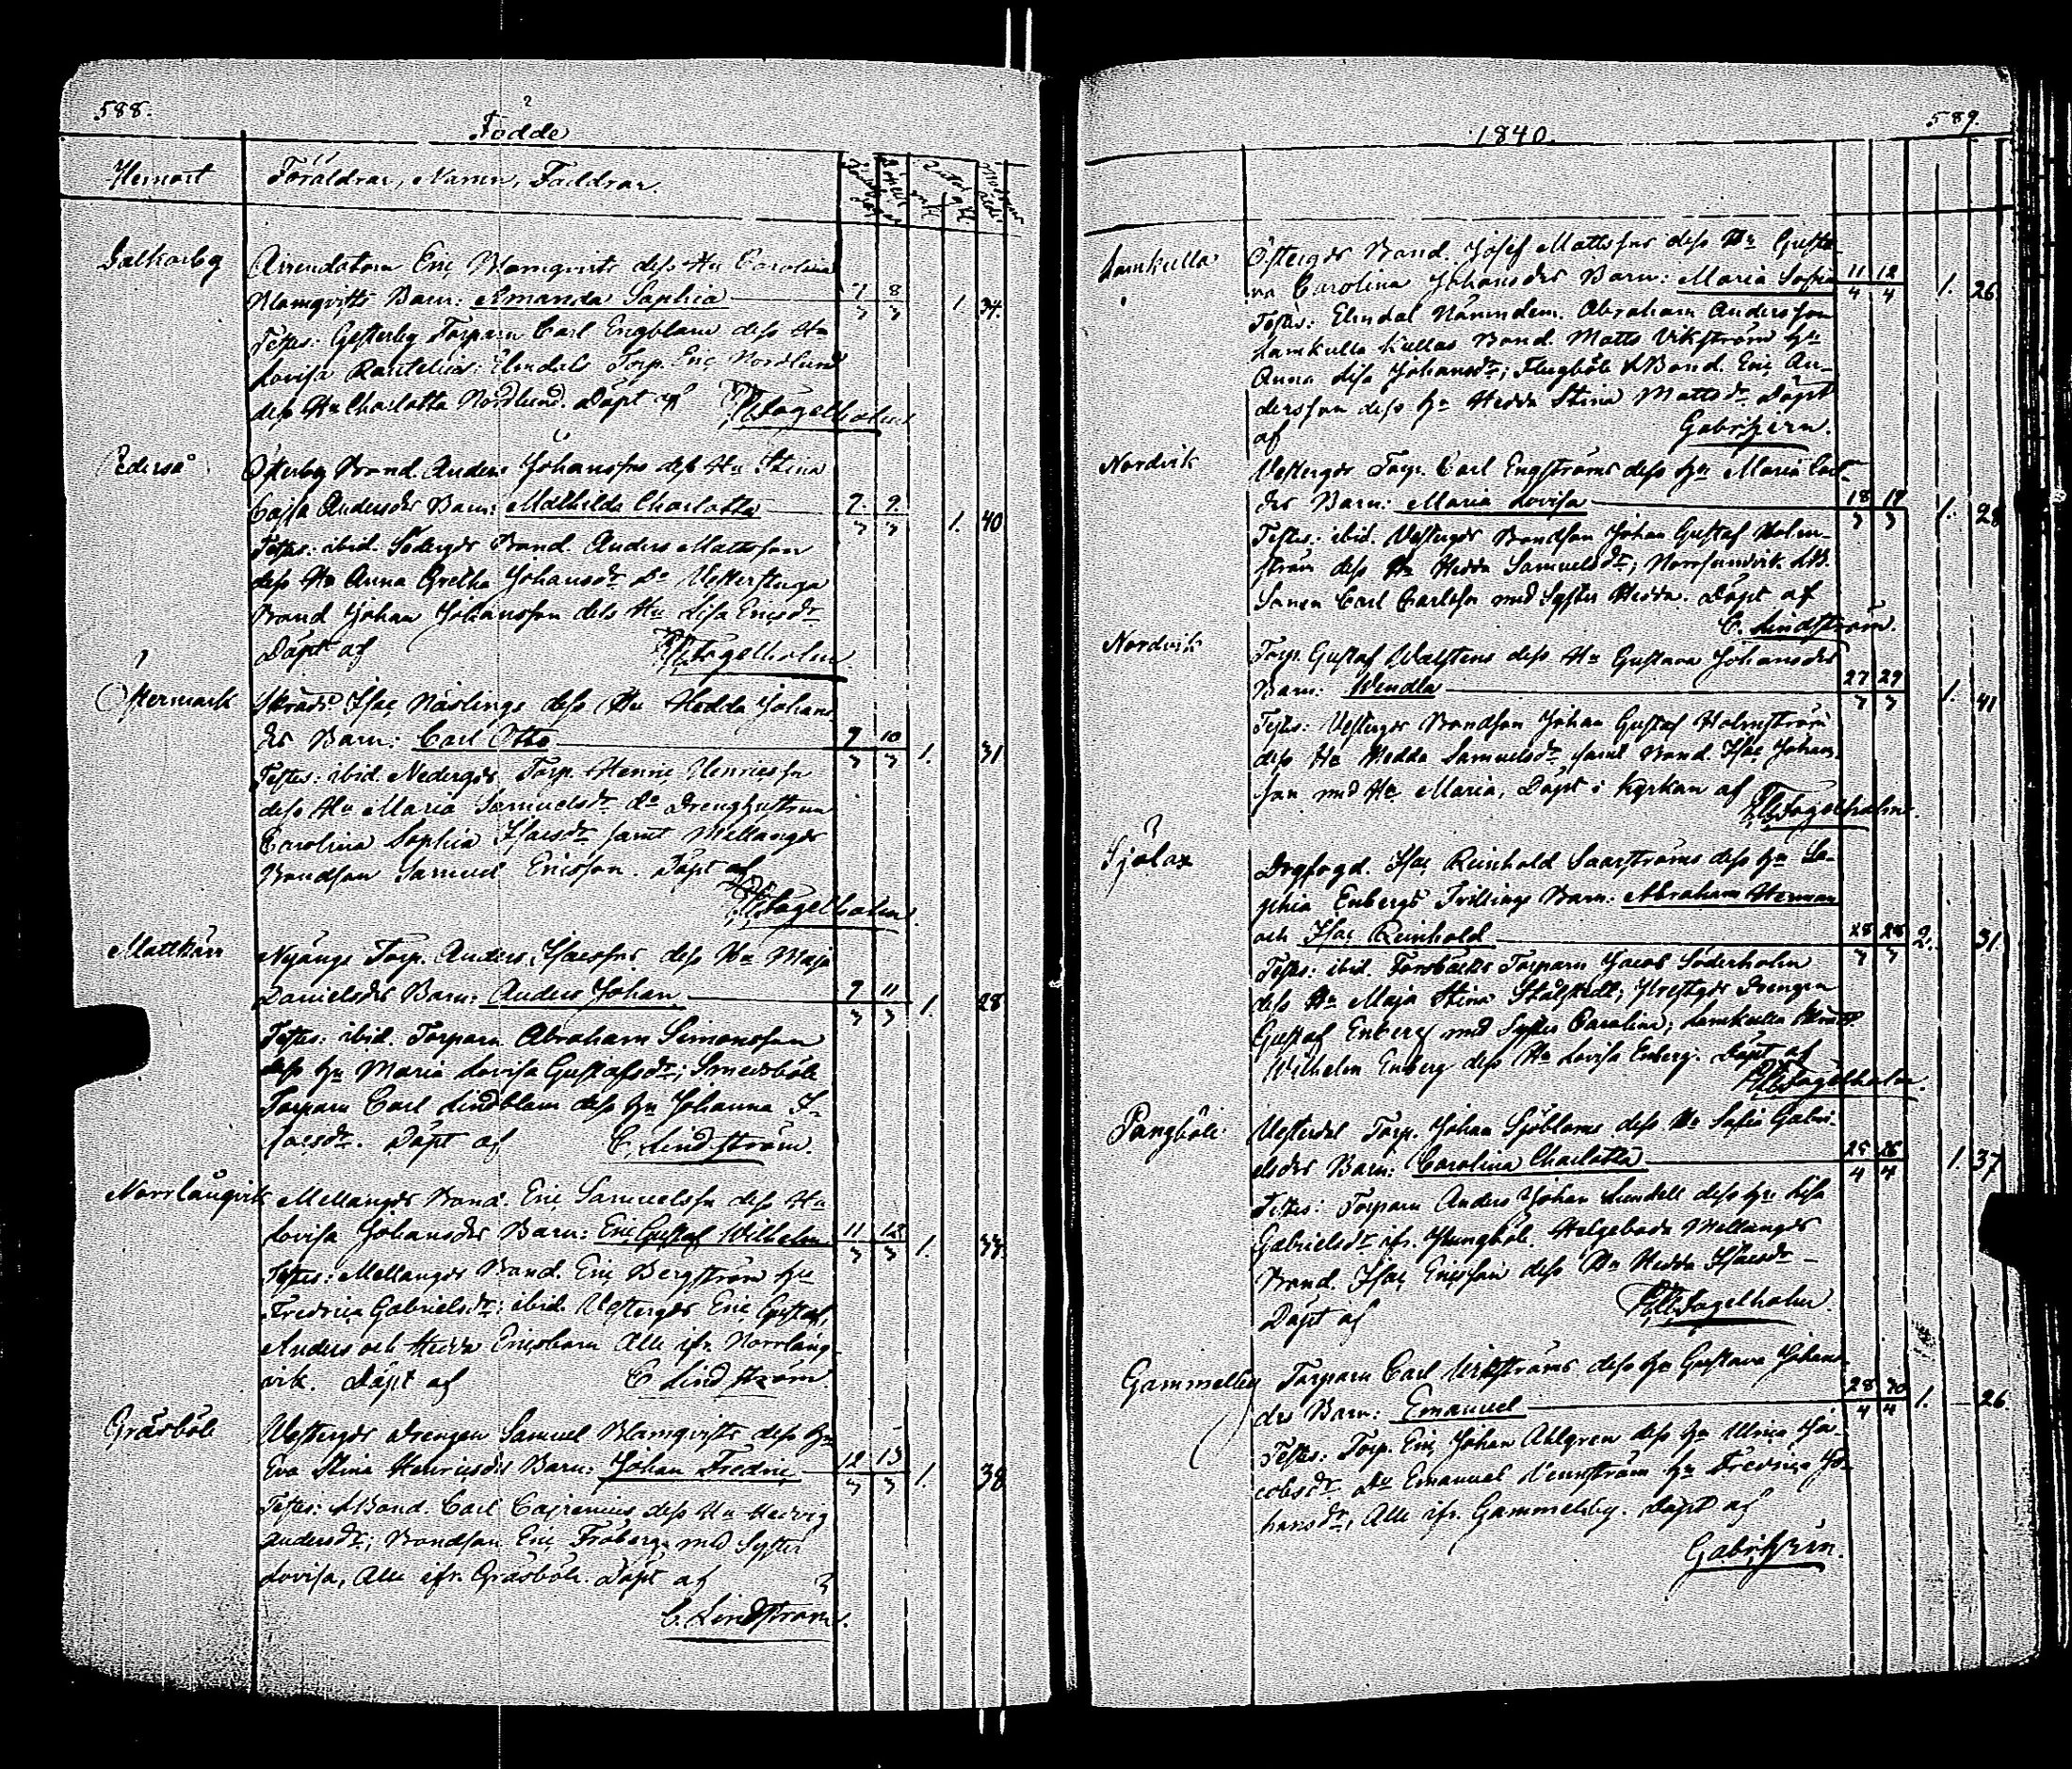 588.
Födde
Hemort
Föräldrar, Namn, Faddrar.
Arrendatorn Eric Blomqvists dess Hu Carolina
Blomqvists Barn: Amanda Sophia 7 8 1 34.
3 3
Testes: Gesterby Torparn Carl Engblom dess Hu
Lovisa Rantelius: Elmdals Torp. Eric Nordlund
dess Hu Charlotta Nordlund. Döpt af Fagelholm
Pederså Österby Bond. Anders Johanssons dess Hu Stina
Cajsa Andersdrs Barn: Mathilda Charlotta 7. 9. 1. 40
3 3
Testes: ibid. Södergds Bond. Anders Mattsson
dess Hu Anna Gretha Johansdr Do Vesterstuga
Bond Johan Johansson dess Hu Lisa Ericsdr
Döpt af Fagelholm
Östermark Skrädd Isac Näslings dess Hu Hedda Johans
drs Barn: Carl Otto 9 10 1. 31
3 3
Testes: ibid Nedergds Torp. Henric Henricsson
dess Hu Maria Samuelsdr Do Drenghustrun
Carolina Sophia Isacsdr samt Mellangds
Bondson Samuel Ericsson. Döpt af
Fagelholm
Mattkärr Nyängs Torp. Anders Isacssons dess Hu Maja
Danielsdrs Barn: Anders Johan 9 11 1. 28
3 3
Testes: ibid. Torparn Abraham Simonsson
dess Hu Maria Lovisa Gustafsdr; Smedsböle
Torparn Carl Lindblom dess Hu Johanna I-
sacsdr. Döpt af C. Lindström.
Norrlångvik Mellangds Bond. Eric Samuelsson dess Hu
Lovisa Johansdrs Barn: Eric Gustaf Wilhelm 11 12 1. 33
3 3
Testes: Mellangds Bond. Eric Bergström Hu
Fredrica Gabrielsdr; ibid. Vestergds Eric Gustaf,
Anders och Hedda Ericsbarn Alle ifr. Norrlång-
vik. Döpt af C Lindström
Gräsböle Vestergds Drengen Samuel Blomqvists dess Hu
Eva Stina Henricsdrs Barn: Johan Fredric 12 13 1. 38
3 3
Testes: Bond. Carl Cajrenius dess Hu Hedvig
Andersdr; Bondson Eric Froberg med Syster
Lovisa, Alle ifr. Gräsböle. Döpt af
C. Lindström.
1840.
589.
Lamkulla Östergds Bond. Josef Mattssons dess Hu Gusta-
va Carolina Johansdrs Barn: Maria Sofia 11 12 1. 26
4 4
Testes: Elmdal Nämndem. Abraham Andersson
Lamkulla Kullas Bond. Matts Vikström Hu
Anna Lisa Johansdr; Flugböle Bond. Eric An-
dersson dess Hu Hedda Stina Mattsdr Döpt
af
Nordvik Vestergds Torp. Carl Engströms dess Hu Maria Carls-
drs Barn: Maria Lovisa 18 19 1. 28
3 3
Testes: ibid. Vestergds Bondson Johan Gustaf Holm-
ström dess Hu Hedda Samuelsdr; Norrsundvik
Sonen Carl Carlsson med Syster Hedda. Döpt af
C. Lindström.
Nordvik Torp. Gustaf Walstens dess Hu Gustava Johansdrs
Barn: Wendla 27 29 1. 41
3 3
Testes: Vestergds Bondson Johan Gustaf Holmström
dess Hu Hedda Samuelsdr samt Bond. Isac Johans-
son med Hu Maria, Döpt i Kyrkan af
Fagelholm.
Sjölax Isac Reinhold Saarströms dess Hu So-
phia Enbergs Tvillings Barn: Abraham Herman
och Isac Reinhold 28 28 2. 31
3 3
Testes: ibid. Forsbäcks Torparn Jacob Söderholm
dess Hu Maja Stina Stålstedt; Drengen
Gustaf Enberg med Syster Carolina; Lamkulla
Wilhelm Enberg dess Hu Lovisa Enberg. Döpt af
Fagelholm.
Pungböle Vesterdal Torp. Johan Sjöbloms dess Hu Sofia Gabri-
elsdrs Barn: Carolina Charlotta 25 26 1. 37
4 4
Testes: Torparn Anders Johan Lundell dess Hu Lisa
Gabrielsdr ifr. Pungböle. Helgeboda Mellangds
Bond. Isac Ericsson dess Hu Hedda Isacsdr
Döpt af Fagelholm
Gammelby Torparn Carl Wikströms dess Hu Gustava Johans
drs Barn: Emanuel 28 30 1. 26
4 4
Testes: Torp. Eric Johan Ahlgren dess Hu Ulrica Ja-
cobsdr Do Emanuel Hu Fredrica Jo-
hansdr, Alle ifr. Gammelby. Döpt af